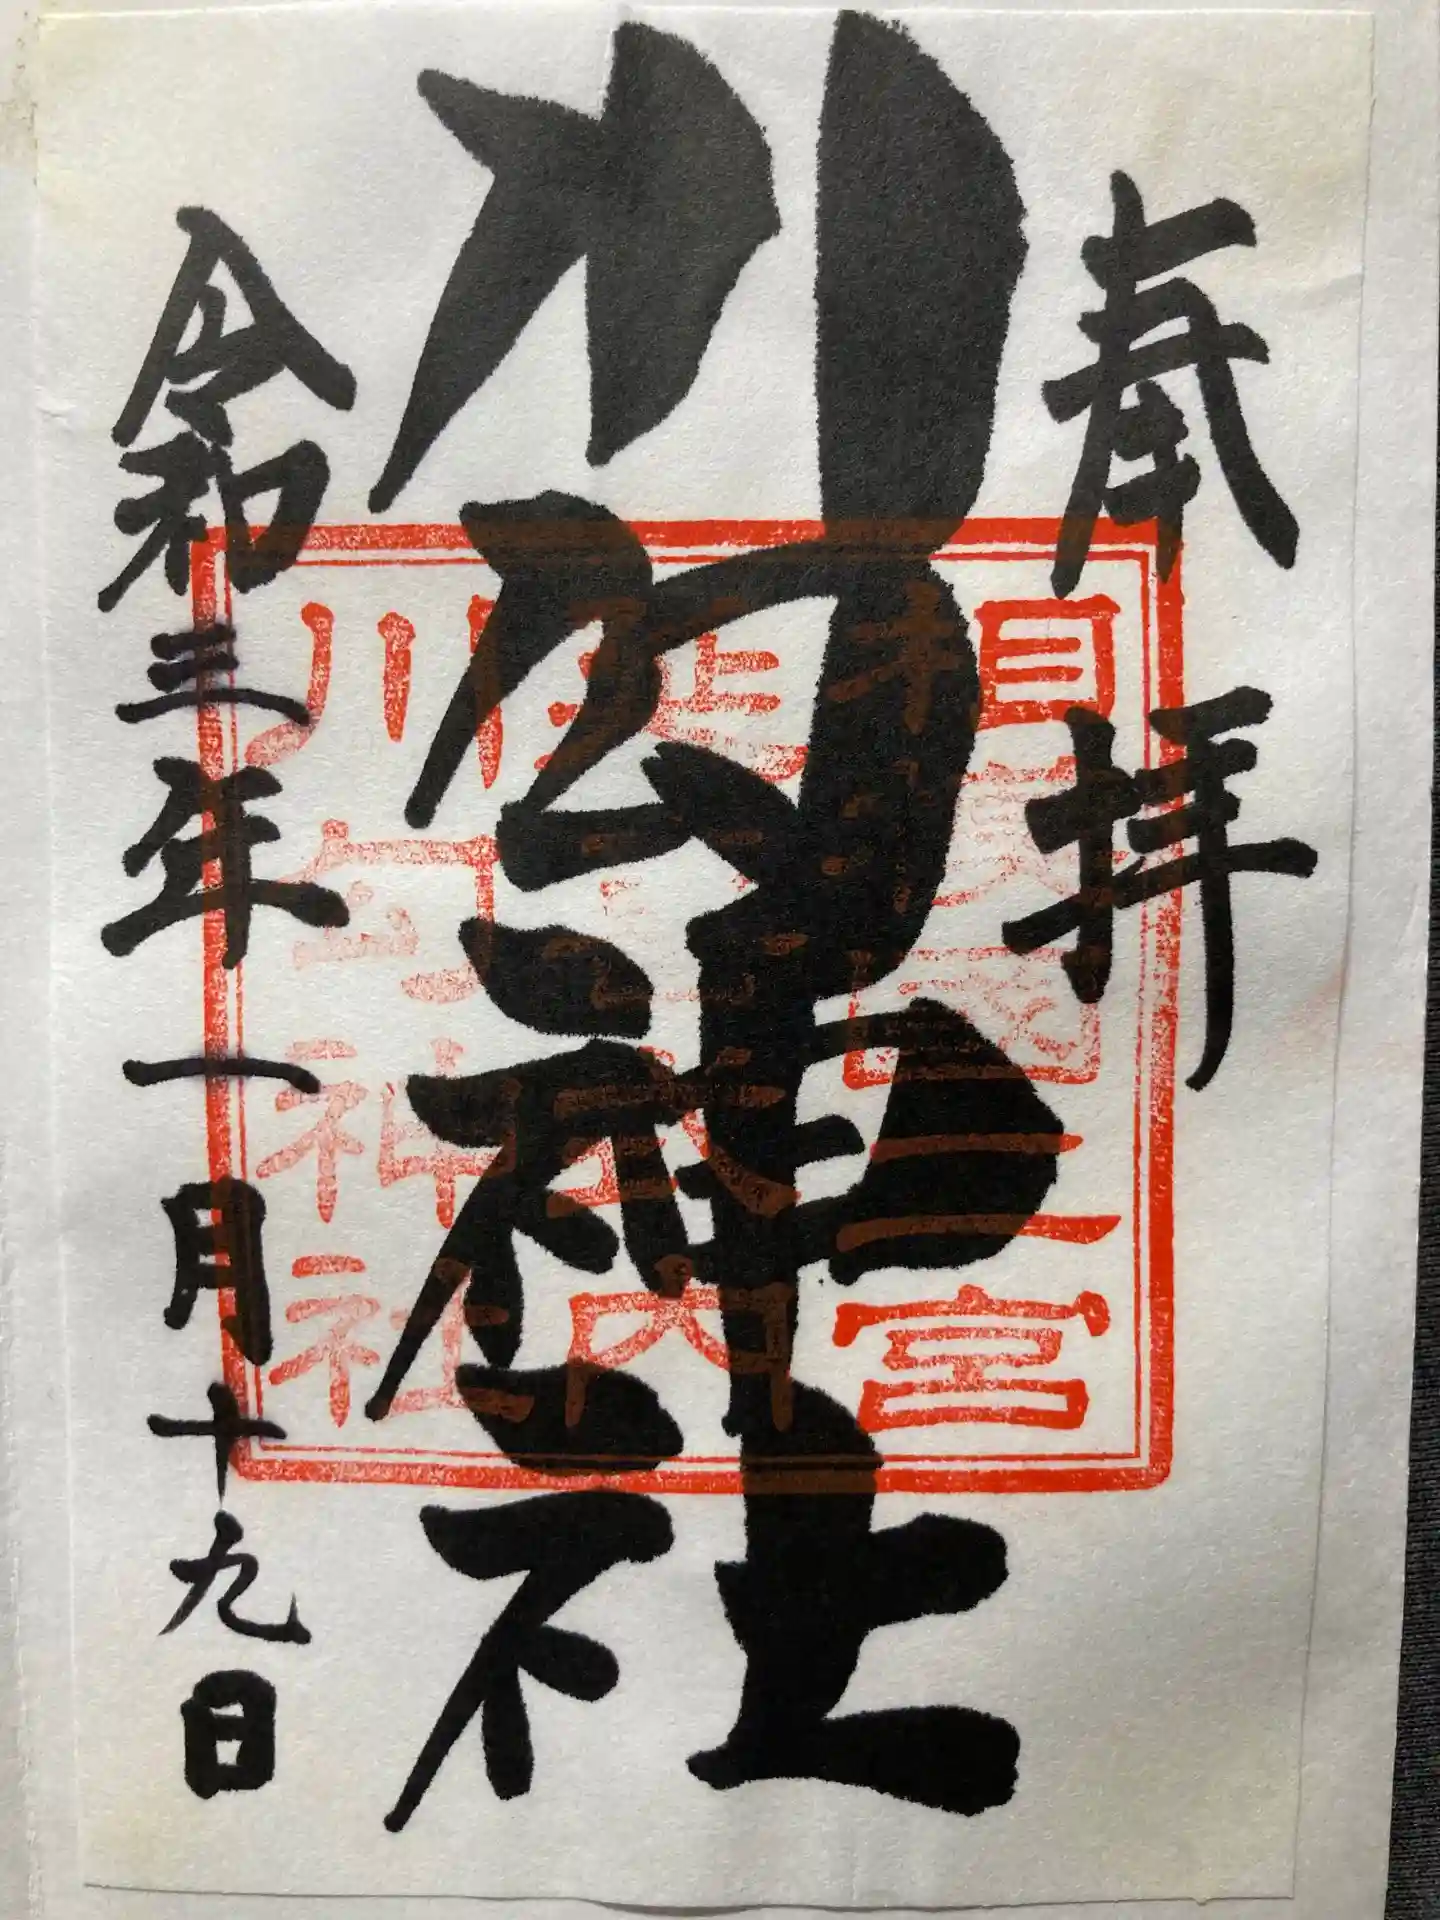 奉拝
川匂神社
令和三年一月十九日
相模國二宮
延喜式内
川匂神社